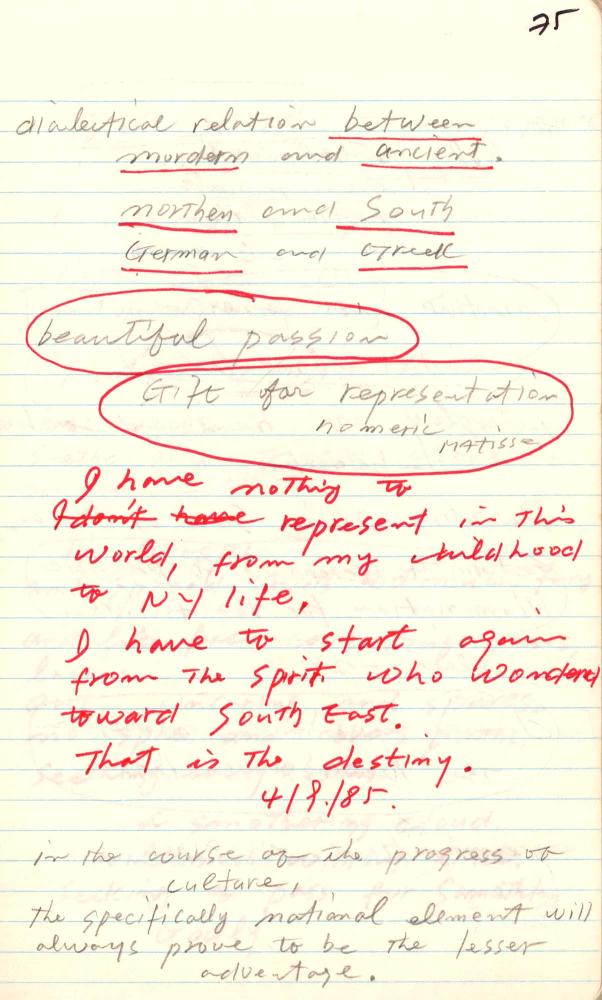 75
dialectical relation between
mordern and ancient.
northen and South
German and Greek
beautiful passion
Gift for representation
homeric
MATISSE
I have nothing to
I don't have represent in This
World, from my childhood
to NY life,
I have to start again
from The Spirit who wondered
toward South East.
That is The destiny.
4/9./85.
in the course of the progress of
culture,
the specifically national element will
always prove to be the lesser
adventage.